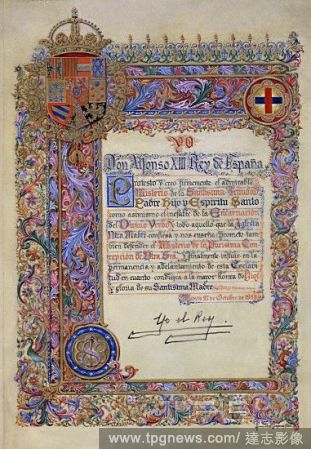 YO
Don Alfonso XIII Rey de España
Protesto y creo firmemente el admirable
Misterio de la Santísima Trinidad
Padre Hijo y Espíritu Santo
como asimismo el inefable de la Encarnación
del Divino Verbo y todo aquello que la Iglesia
Ntra Madre confiesa y nos enseña prometo tam
bien defender el Misterio de la Purísima Con
cepción de Ntra Sra. Y finalmente influir en la
permanencia y adelantamiento de esta Esclavi
tud en cuanto conduzca a la mayor honra de Dios
y gloria de su Santísima Madre
de Octubre de
Yo el Rey
www.tpgnews.com/ 達志影像